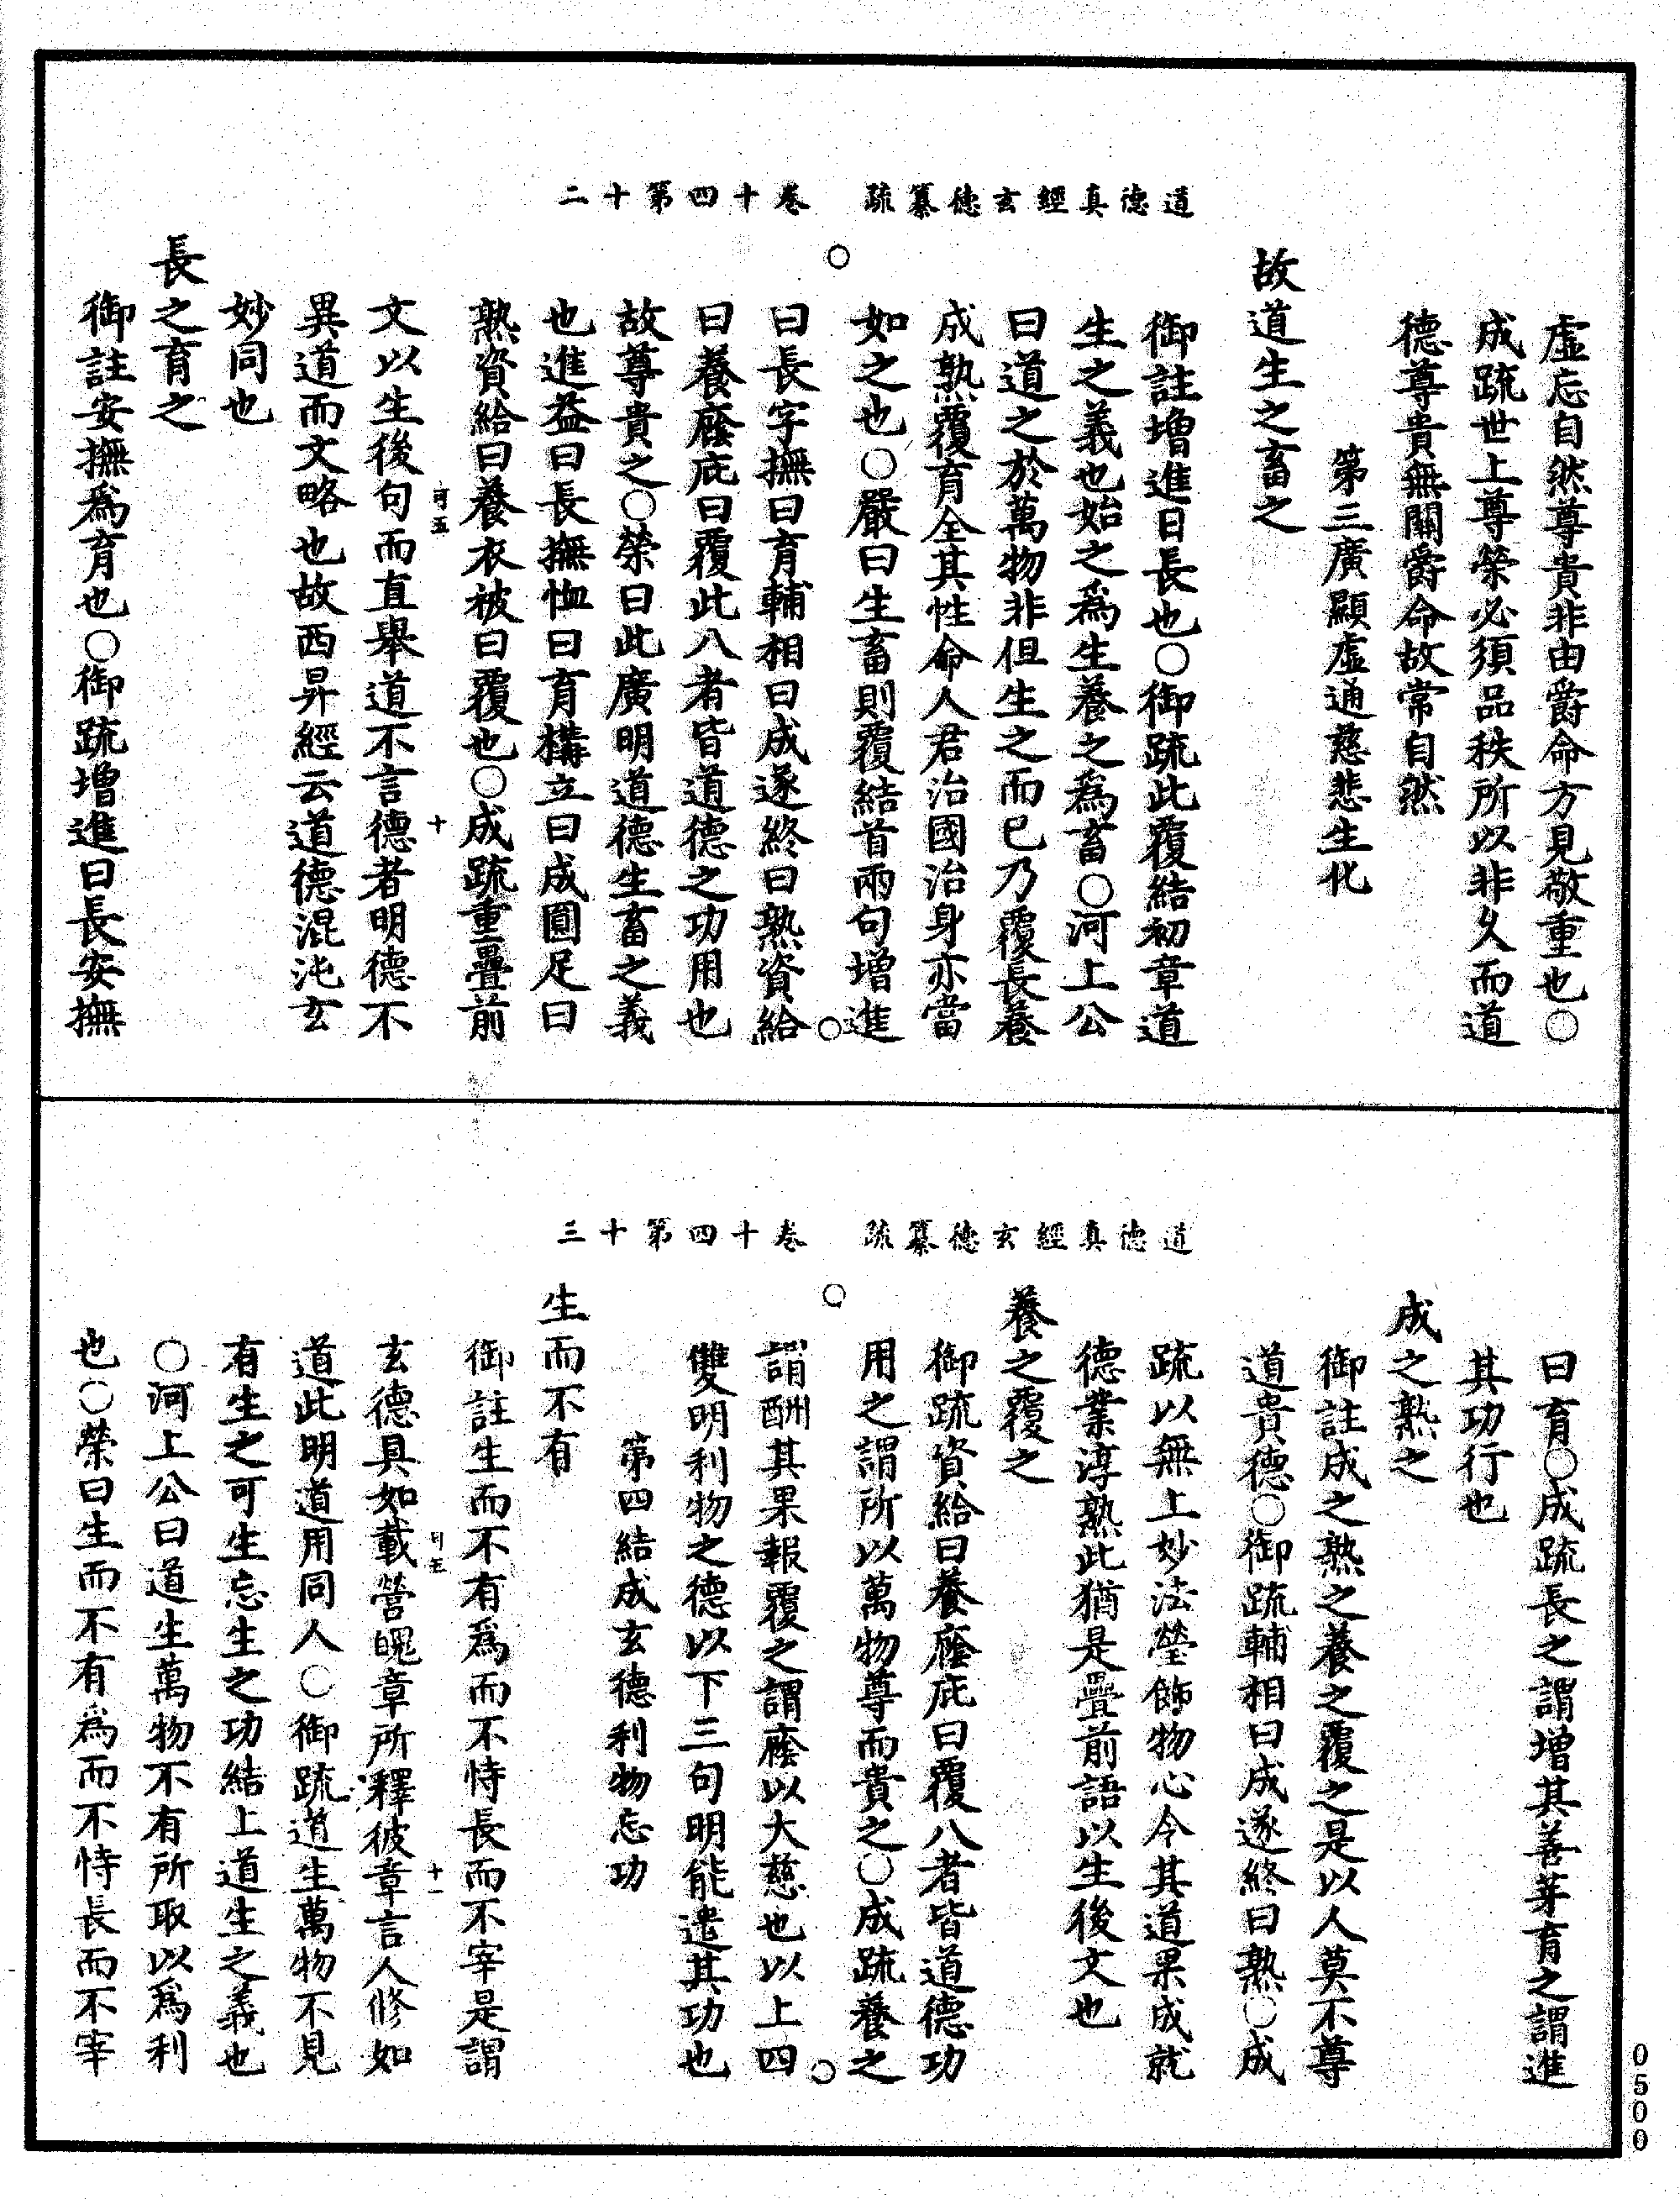 道德真經玄德纂疏　卷十四第十二
虛忘自然尊貴非由爵命方見敬重也○
成疏世上尊榮必須品秩所以非久而道
德尊貴無關爵命故常自然
第三廣顯虛通慈悲生化
故道生之畜之
御註增進曰長也○御疏此覆結初章道
生之義也始之爲生養之爲畜○河上公
曰道之於萬物非但生之而已乃覆長養
成熟覆育全其性命人君治國治身亦當
如之也○嚴曰生畜則覆結首兩句增進
曰長字撫曰育輔相曰成遂終曰熟資給
曰養廕庇曰覆此八者皆道德之功用也
故尊貴之○榮曰此廣明道德生畜之義
也進益曰長撫恤曰育構立曰成圓足曰
熟資給曰養衣被曰覆也○成疏重疊前
可五　十
文以生後句而直舉道不言德者明德不
異道而文略也故西昇經云道德混沌玄
妙同也
長之育之
御註安撫爲育也○御疏增進曰長安撫
道德真經玄德纂疏　卷十四第十三
曰育○成疏長之謂增其善芽育之謂進
其功行也
成之熟之
御註成之熟之養之覆之是以人莫不尊
道貴德○御疏輔相曰成遂終曰熟○成
疏以無上妙法瑩飾物心令其道果成就
德業淳熟此猶是疊前語以生後文也
養之覆之
御疏資給曰養廕庇曰覆八者皆道德功
用之謂所以萬物尊而貴之○成疏養之
謂酬其果報覆之謂廕以大慈也以上四
雙明利物之德以下三句明能遣其功也
第四結成玄德利物忘功
生而不有
御註生而不有爲而不恃長而不宰是謂
可五　十一
玄德具如載營魄章所釋彼章言人修如
道此明道用同人○御疏道生萬物不見
有生之可生忘生之功結上道生之義也
○河上公曰道生萬物不有所取以爲利
也○榮曰生而不有爲而不恃長而不宰
0500